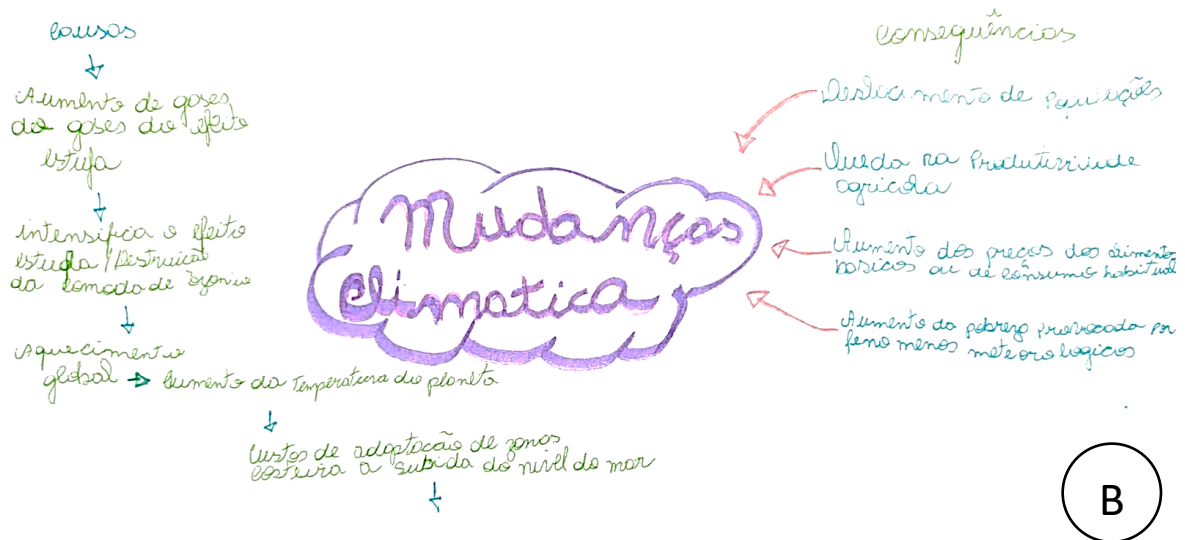 Causas
Aumento de gases
do gases do efeito
estufa
intensifica o efeito
estufa / Destruição
da camada de ozonio
Aquecimento
global → Aumento da Temperatura do planeta
Custos de adaptação de zonas
costeira a subida do nivel do mar
Mudanças
Climatica
Consequências
Deslocamento de Populações
Queda na Produtividade
agricola
Aumento dos preços dos alimentos
basicos ou de consumo habitual
Aumento da pobreza provocada por
fenomenos meteorologicos
B